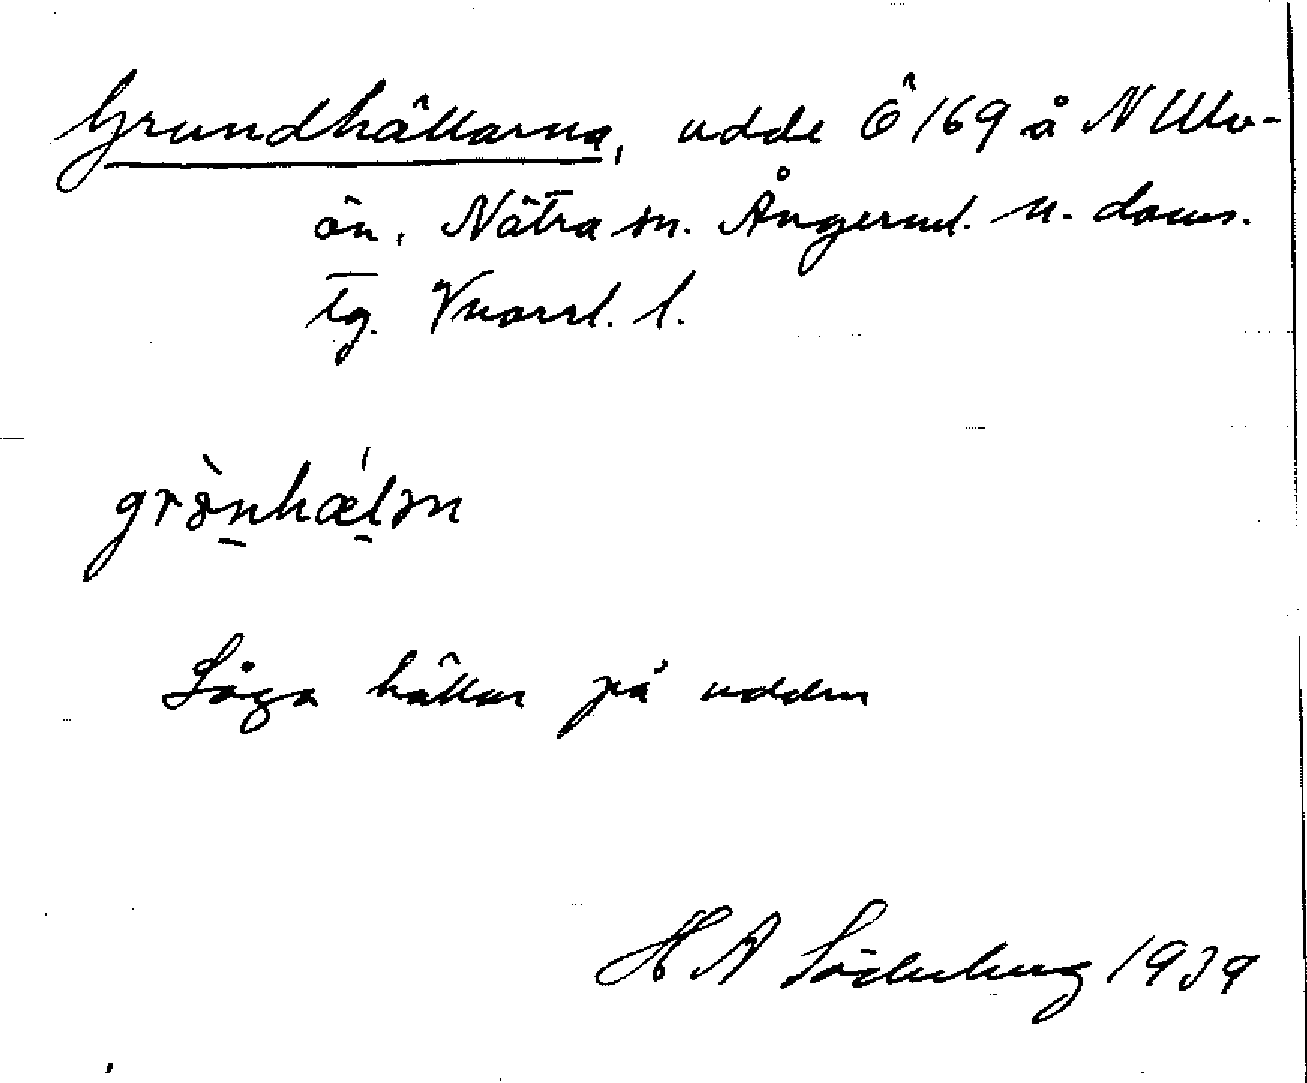 Grundhällarna, udde Ö 169 å N Ulvö-
ön, Nätra sn. Ångerml. n. doms.
tg. Vnorrl. l.
grònhǽlm
Låga hällar på udden
H A Söderberg 1939